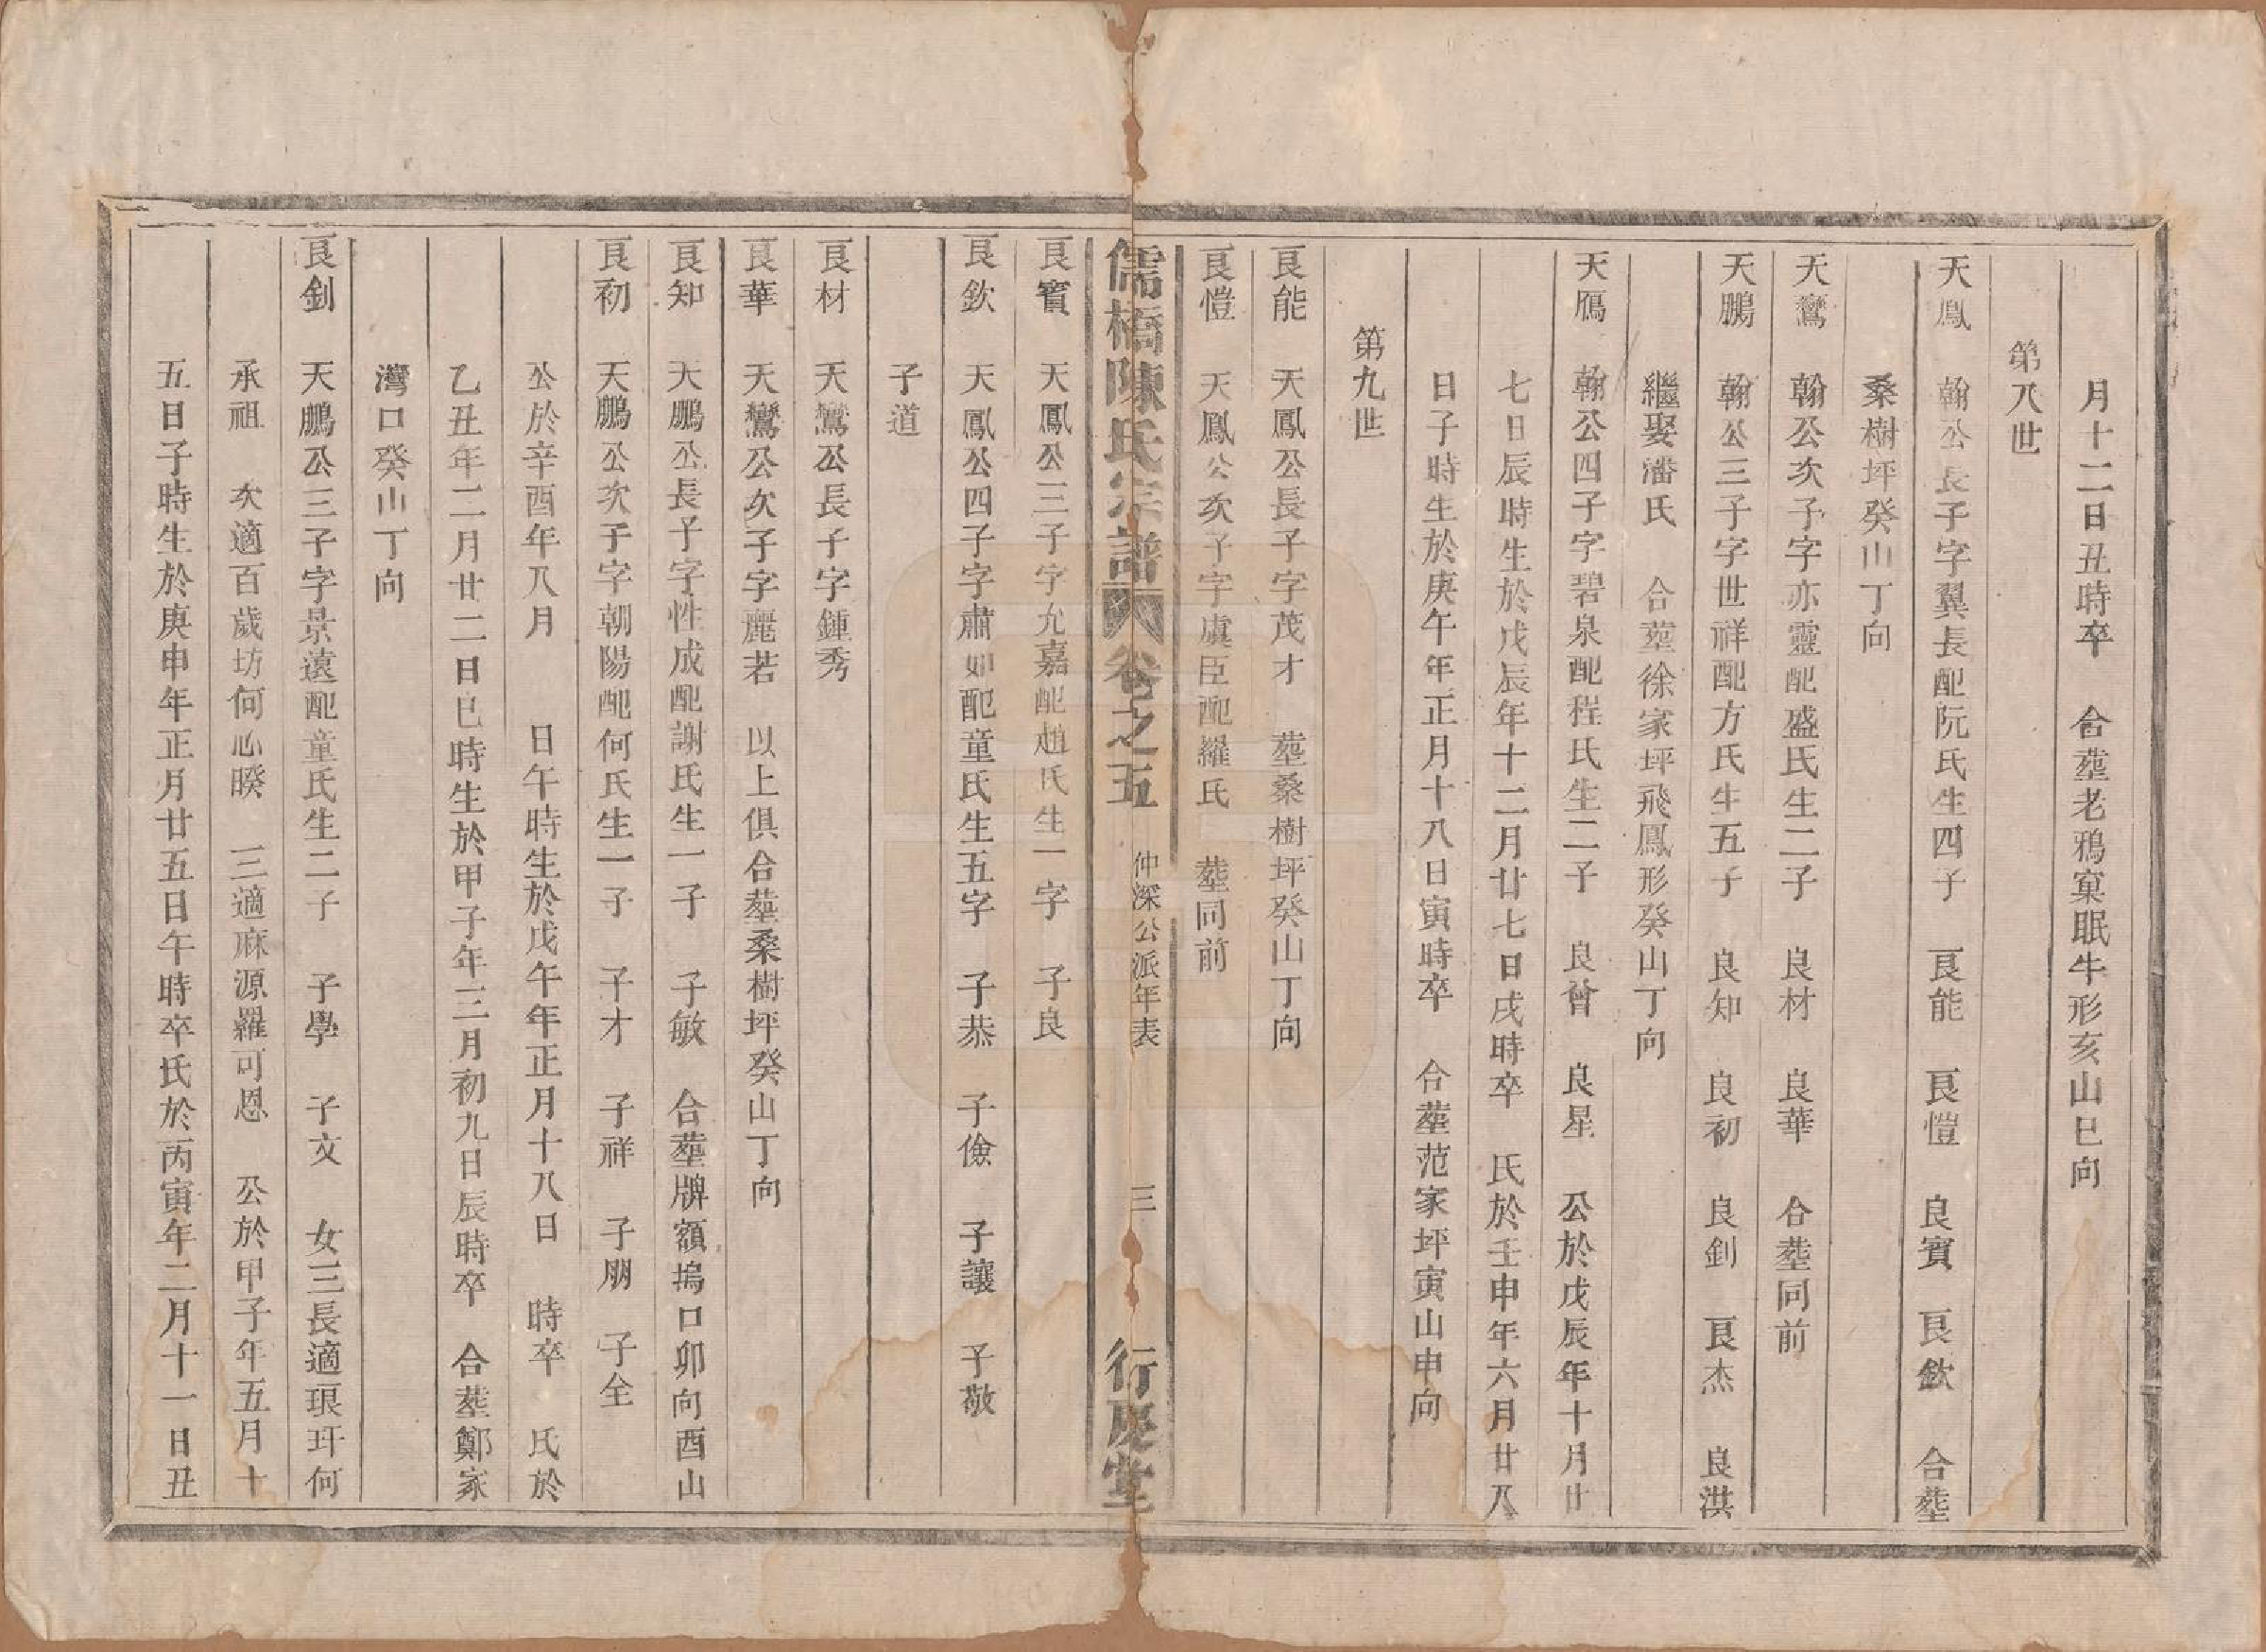 月十二日丑時卒　合塟老鴉窠眠牛形亥山巳向
第八世
天鳳　翰公長子字翼長配阮氏生四子　良能　良愷　良賓　良欽　合塟
桑樹坪癸山丁向
天鸞　翰公次子字亦靈配盛氏生二子　良材　良華　合塟同前
天鵬　翰公三子字世祥配方氏生五子　良知　良初　良釗　良杰　良洪
繼娶潘氏　合塟徐家坪飛鳳形癸山丁向
天鴈　翰公四子字碧泉配程氏生二子　良曾　良星　公於戊辰年十月廿
七日辰時生於戊辰年十二月廿七日戌時卒　氏於壬申年六月廿八
日子時生於庚午年正月十八日寅時卒　合塟范家坪寅山申向
第九世
良能　天鳳公長子字茂才　塟桑樹坪癸山丁向
良愷　天鳳公次子字虞臣配羅氏　塟同前
儒橋陳氏宗譜　卷之五　仲深公派年表　三　行慶堂
良賓　天鳳公三子字允嘉配趙氏生一字　子良
良欽　天鳳公四子字肅如配童氏生五字　子恭　子儉　子讓　子敬
子道
良材　天鸞公長子字鍾秀
良華　天鸞公次子字麗若　以上俱合塟桑樹坪癸山丁向
良知　天鵬公長子字性成配謝氏生一子　子敏　合塟牌額塢口卯向酉山
良初　天鵬公次子字朝陽配何氏生一子　子才　子祥　子朋　子全
公於辛酉年八月　　日午時生於戊午年正月十八日　時卒　氏於
乙丑年二月廿二日巳時生於甲子年三月初九日辰時卒　合塟鄭家
灣口癸山丁向
良釗　天鵬公三子字景遠配童氏生二子　子學　子文　女三長適琅玕何
承祖　次適百歲坊何心暌　三適麻源羅可恩　公於甲子年五月十
五日子時生於庚申年正月廿五日午時卒氏於丙寅年二月十一日丑